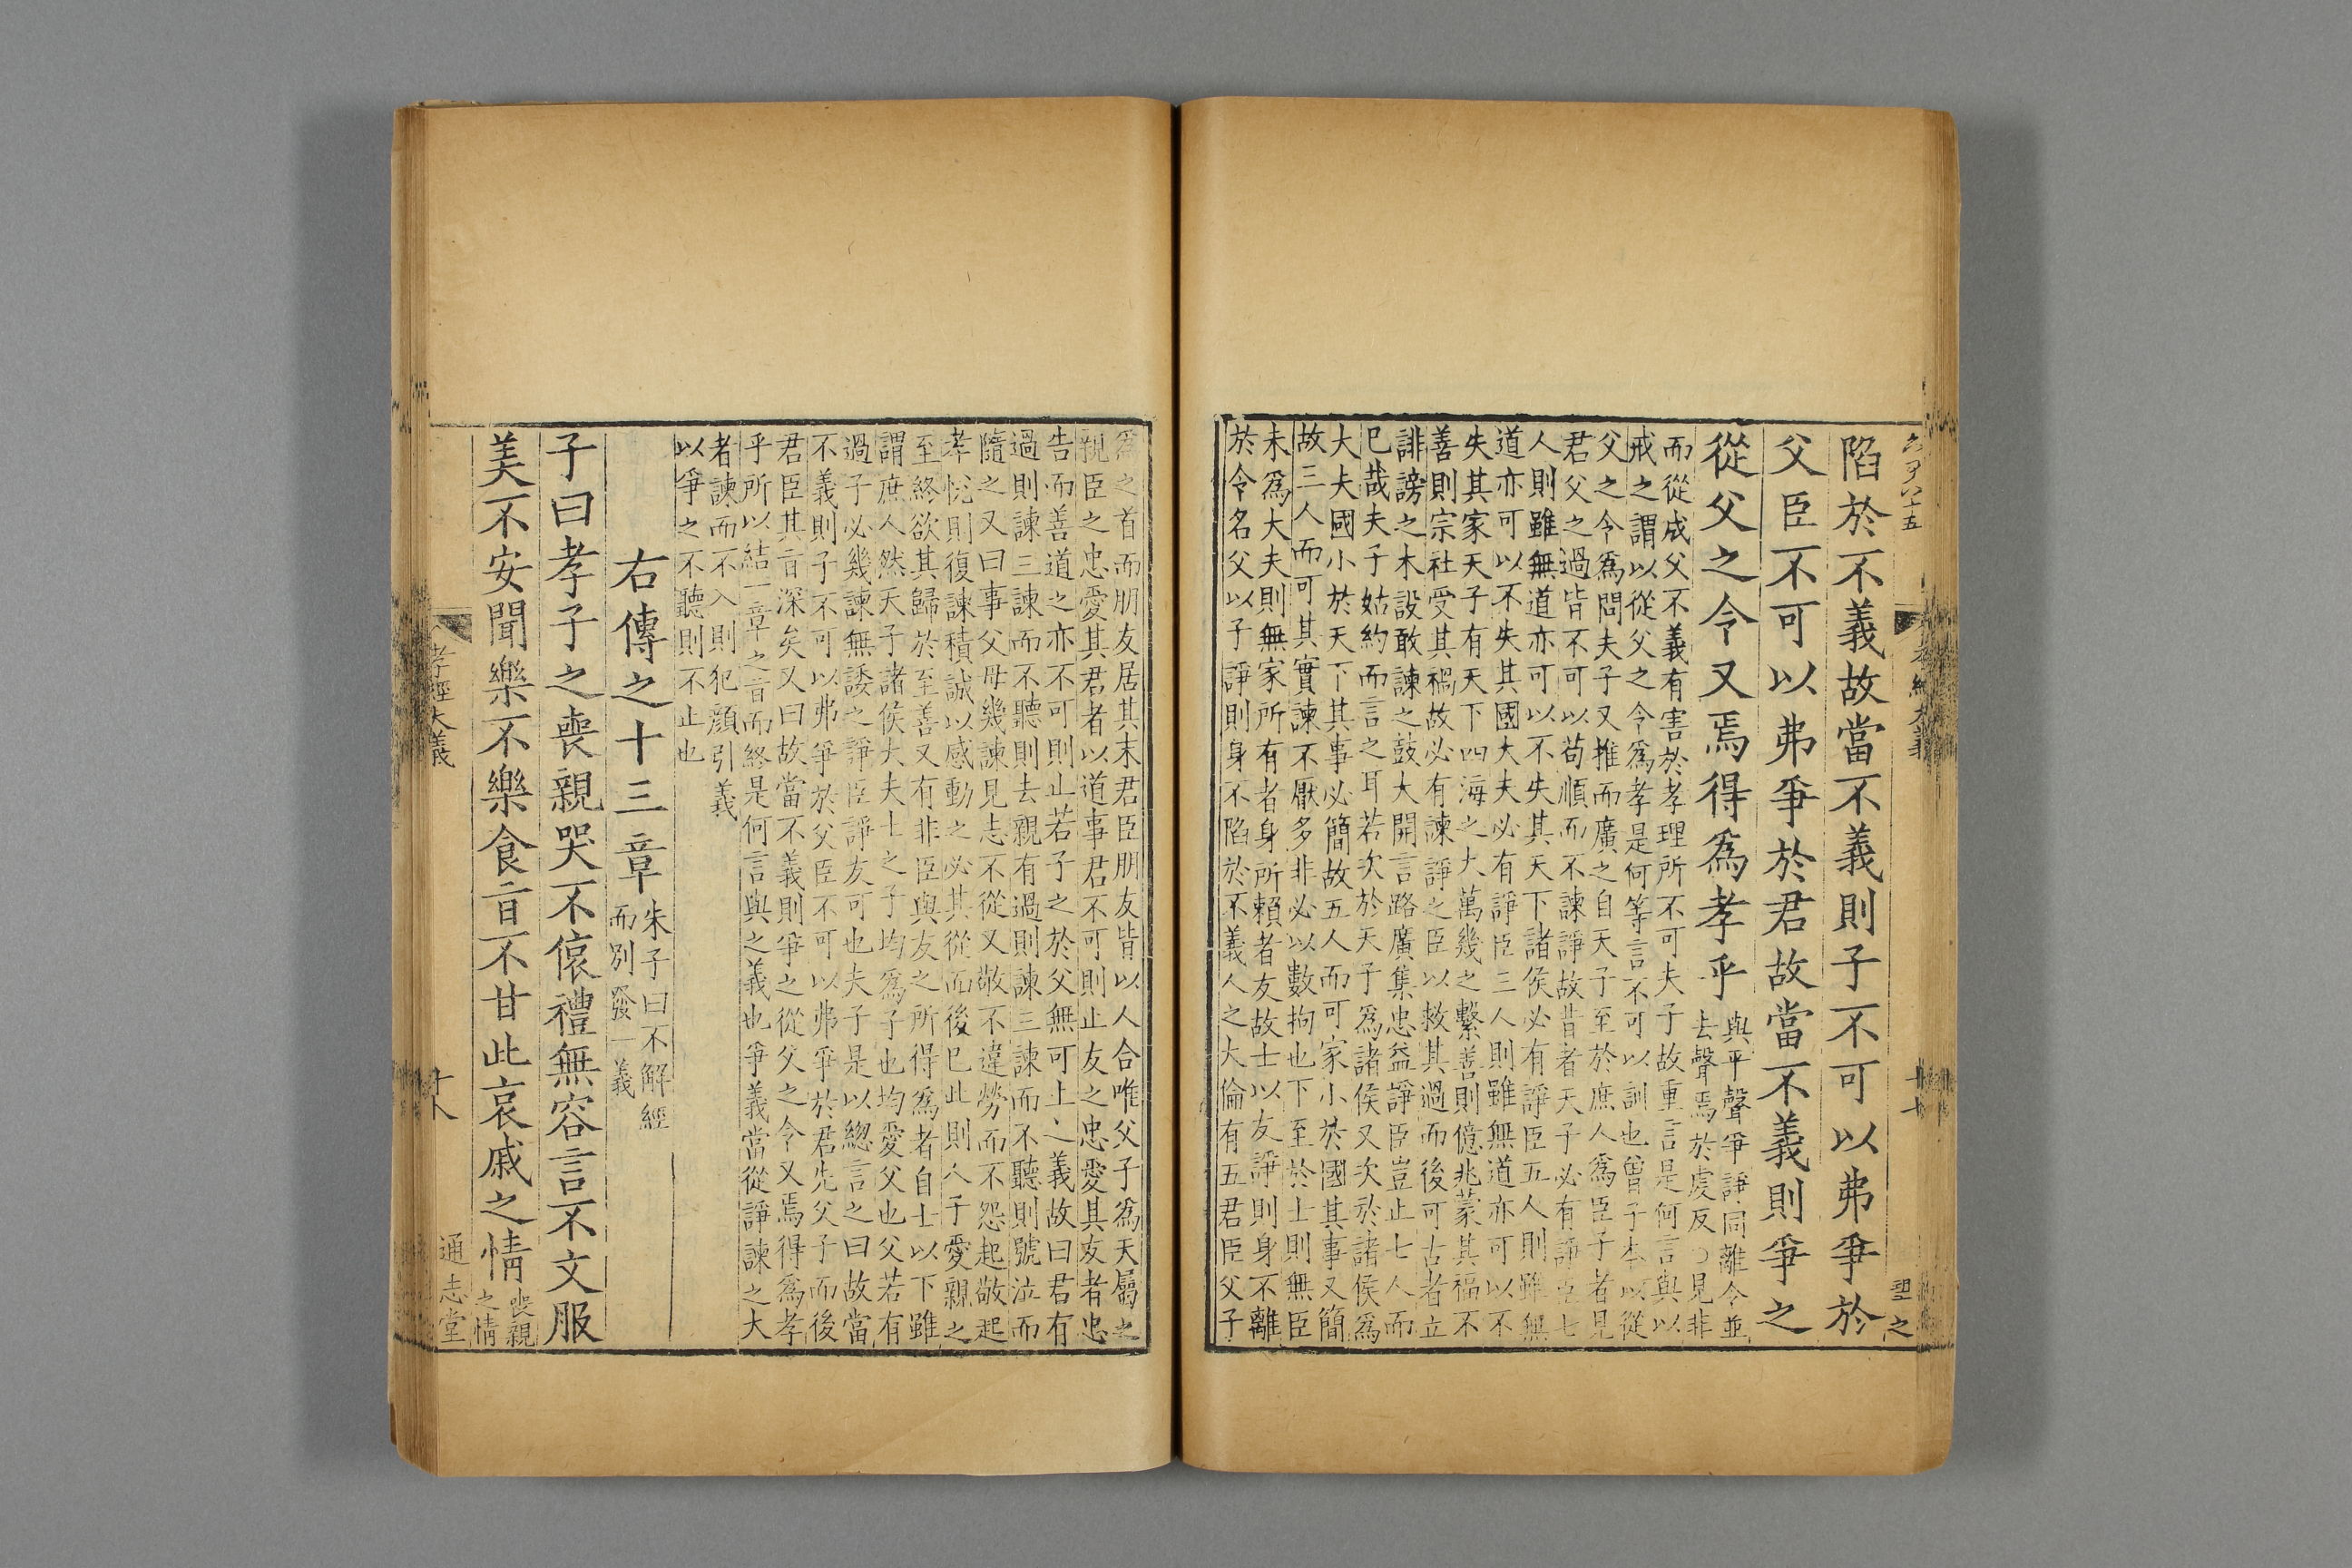 陷於不義故當不義則子不可以弗爭於
父臣不可以弗爭於君故當不義則爭之
從父之令又焉得爲孝乎
與平聲爭諍同離令並
去聲焉於虔反○見非
而從成父不義有害於孝理所不可夫子故重言是何言與以
戒之謂以從父之令爲孝是何等言不可以訓也曾子本以從
父之令爲問夫子又推而廣之自天子至於庶人爲臣子者見
君父之過皆不可以苟順而不諫諍故昔者天子必有諍臣七
人則雖無道亦可以不失其天下諸侯必有諍臣五人則雖無
道亦可以不失其國大夫必有諍臣三人則雖無道亦可以不
失其家天子有天下四海之大萬幾之繫善則億兆蒙其福不
善則宗社受其禍故必有諫諍之臣以救其過而後可古者立
誹謗之木設敢諫之鼓大開言路廣集忠益諍臣豈止七人而
已哉夫子姑約而言之耳若次於天子爲諸侯又次於諸侯爲
大夫國小於天下其事必簡故五人而可家小於國其事又簡
故三人而可其實諫不厭多非必以數拘也下至於士則無臣
未爲大夫則無家所有者身所賴者友故士以友諍則身不離
於令名父以子諍則身不陷於不義人之大倫有五君臣父子
爲之首而朋友居其末君臣朋友皆以人合唯父子爲天屬之
親臣之忠愛其君者以道事君不可則止友之忠愛其友者忠
告而善道之亦不可則止若子之於父無可止之義故曰君有
過則諫三諫而不聽則去親有過則諫三諫而不聽則號泣而
隨之又曰事父母幾諫見志不從又敬不違勞而不怨起敬起
孝悅則復諫積誠以感動之必其從而後已此則人子愛親之
至終欲其歸於至善又有非臣與友之所得爲者自士以下雖
謂庶人然天子諸侯大夫士之子均爲子也均愛父也父若有
過子必幾諫無諉之諍臣諍友可也夫子是以總言之曰故當
不義則子不可以弗爭於父臣不可以弗爭於君先父子而後
君臣其旨深矣又曰故當不義則爭之從父之令又焉得爲孝
乎所以結一章之旨而終是何言與之義也爭義當從諍諫之大
者諫而不入則犯顏引義
以爭之不聽則不止也
右傳之十三章
朱子曰不解經
而別發一義
子曰孝子之喪親哭不偯禮無容言不文服
美不安聞樂不樂食旨不甘此哀戚之情
喪親
之情
孝經大義
十八
通志堂